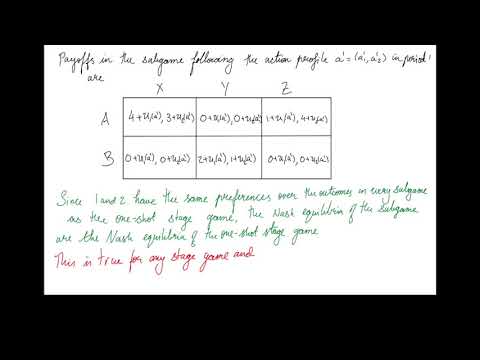 Payoffs in the subgame following the action profile a¹=(a¹₁,a¹₂) in period 1
are
X Y Z
A 4+u₁(a¹), 3+u₂(a¹) 0+u₁(a¹), 0+u₂(a¹) 1+u₁(a¹), 4+u₂(a¹)
B 0+u₁(a¹), 0+u₂(a¹) 2+u₁(a¹), 1+u₂(a¹) 0+u₁(a¹), 0+u₂(a¹)
Since 1 and 2 have the same preferences over the outcomes in every subgame
as the one-shot stage game, the Nash equilibria of the subgame
are the Nash equilibria of the one-shot stage game
This is true for any stage game and